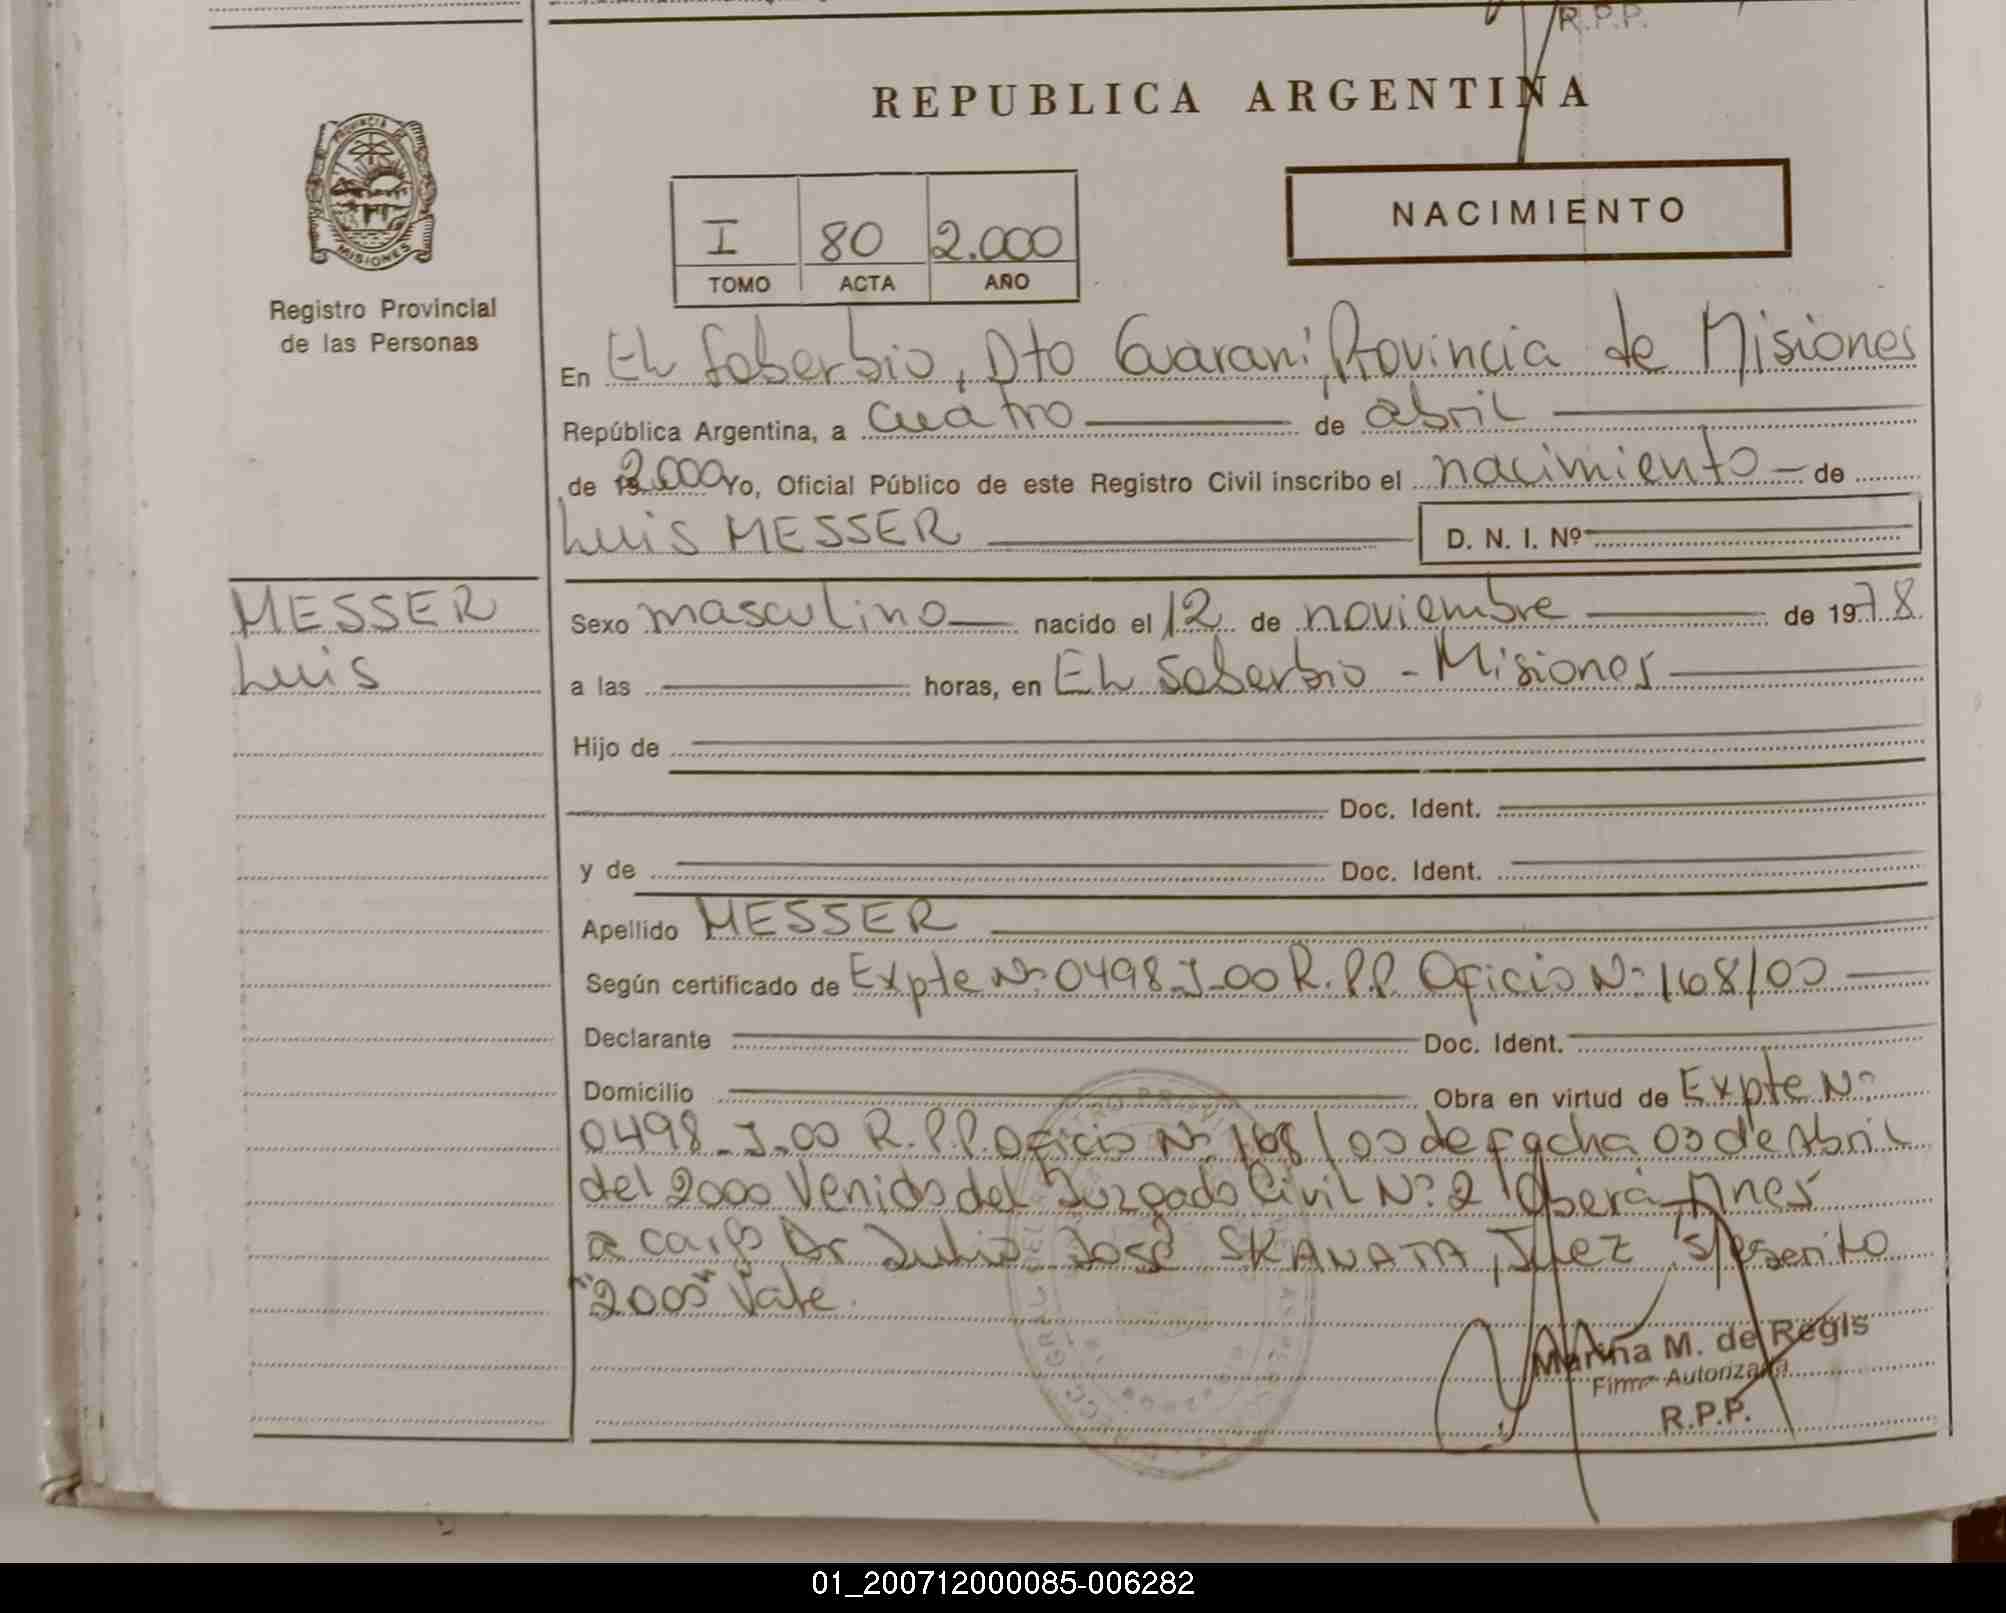 R.P.P.
REPUBLICA ARGENTINA
PROVINCIA DE
MISIONES
Registro Provincial
de las Personas
I 80 2.000
TOMO ACTA AÑO
NACIMIENTO
En El Soberbio, Dto Guaraní, Provincia de Misiones
República Argentina, a cuatro de abril
de 2.000 Yo, Oficial Público de este Registro Civil inscribo el nacimiento de
Luis MESSER D. N. I. Nº
MESSER
Luis
Sexo masculino nacido el 12 de noviembre de 1978
a las horas, en El Soberbio - Misiones
Hijo de
Doc. Ident.
y de Doc. Ident.
Apellido MESSER
Según certificado de Expte Nº 0498-J-00 R.P.P. Oficio Nº 168/00
Declarante Doc. Ident.
Domicilio Obra en virtud de Expte Nº
0498-J-00 R.P.P. Oficio Nº 168/00 de fecha 03 de Abril
del 2000 Venido del Juzgado Civil Nº 2 Oberá Mnes
a cargo Dr Julio José SKANATA, Juez, s/escrito
"2000" Vale.
Marina M. de Regis
Firma Autorizada
R.P.P.
01_200712000085-006282